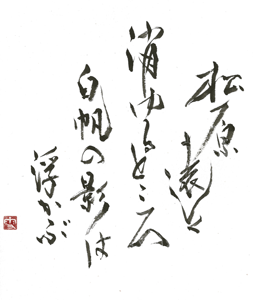 松原遠く
消ゆるところ
白帆の影は
浮かぶ